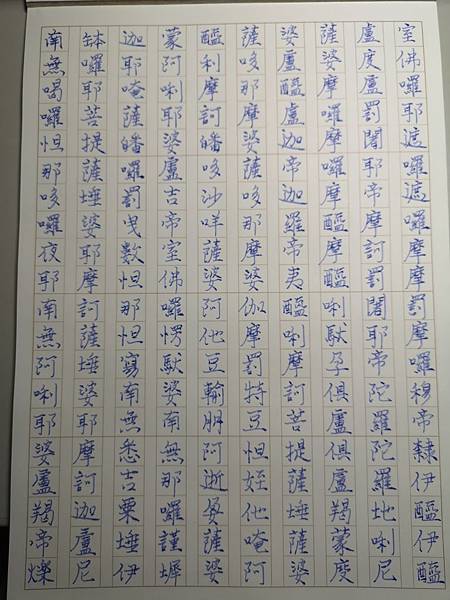 南無喝囉怛那哆囉夜耶南無阿唎耶婆盧羯帝爍
缽囉耶菩提薩埵婆耶摩訶薩埵婆耶摩訶迦盧尼
迦耶唵薩皤囉罰曳數怛那怛寫南無悉吉栗埵伊
蒙阿唎耶婆盧吉帝室佛囉愣馱婆南無那囉謹墀
醯利摩訶皤哆沙咩薩婆阿他豆輸朋阿逝孕薩婆
薩哆那摩婆薩哆那摩婆伽摩罰特豆怛姪他唵阿
婆盧醯盧迦帝迦羅帝夷醯唎摩訶菩提薩埵薩婆
薩婆摩囉摩囉摩醯摩醯唎馱孕俱盧俱盧羯蒙度
盧度盧罰闍耶帝摩訶罰闍耶帝陀羅陀羅地唎尼
室佛囉耶遮囉遮囉摩摩罰摩囉穆帝隸伊醯伊醯